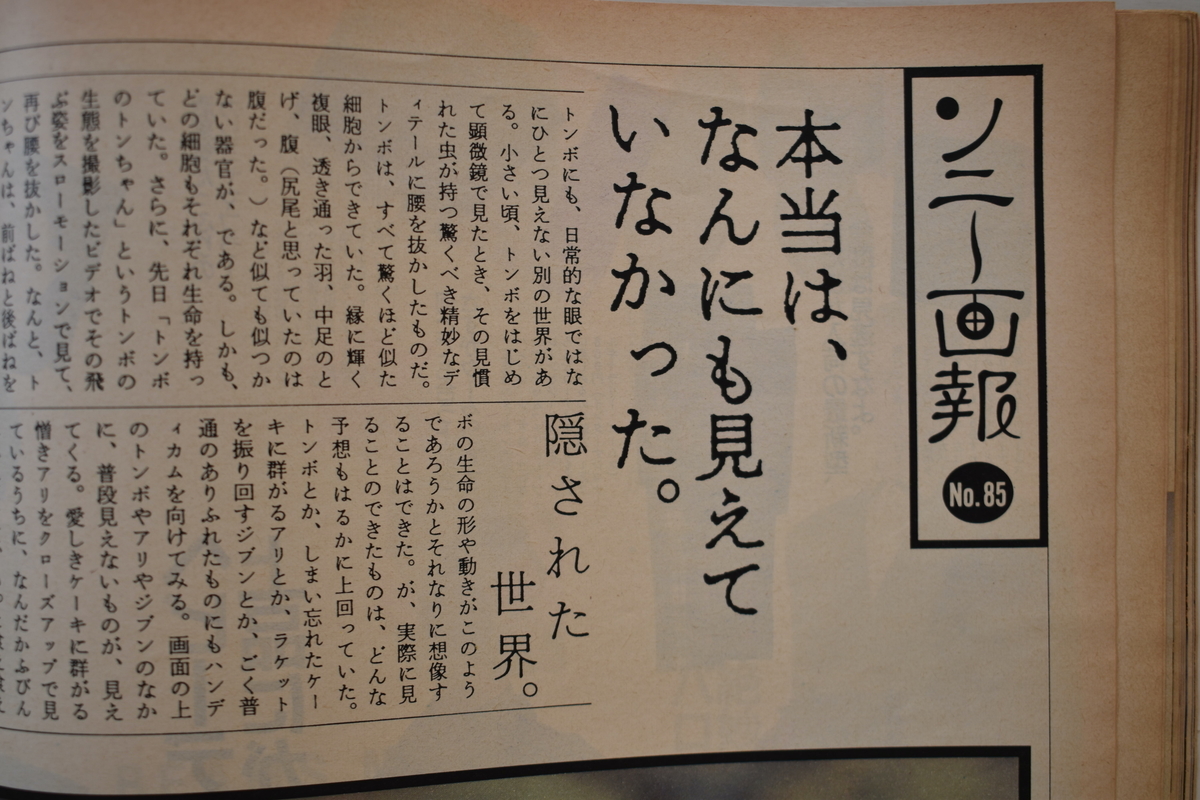 ソニー画報
No.85
本当は、
なんにも見えて
いなかった。
トンボにも、日常的な眼ではな
にひとつ見えない別の世界があ
る。小さい頃、トンボをはじめ
て顕微鏡で見たとき、その見慣
れた虫が持つ驚くべき精妙なデ
ィテールに腰を抜かしたものだ。
トンボは、すべて驚くほど似た
細胞からできていた。緑に輝く
複眼、透き通った羽、中足のと
げ、腹(尻尾と思っていたのは
腹だった。)など似ても似つか
ない器官が、である。しかも、
どの細胞もそれぞれ生命を持っ
ていた。さらに、先日「トンボ
のトンちゃん」というトンボの
生態を撮影したビデオでその飛
ぶ姿をスローモーションで見て、
再び腰を抜かした。なんと、ト
ンちゃんは、前ばねと後ばねを
隠された
世界。
ボの生命の形や動きがこのよう
であろうかとそれなりに想像す
ることはできた。が、実際に見
ることのできたものは、どんな
予想もはるかに上回っていた。
トンボとか、しまい忘れたケー
キに群がるアリとか、ラケット
を振り回すジブンとか、ごく普
通のありふれたものにもハンデ
ィカムを向けてみる。画面の上
のトンボやアリやジブンのなか
に、普段見えないものが、見え
てくる。愛しきケーキに群がる
憎きアリをクローズアップで見
ているうちに、なんだかふびん